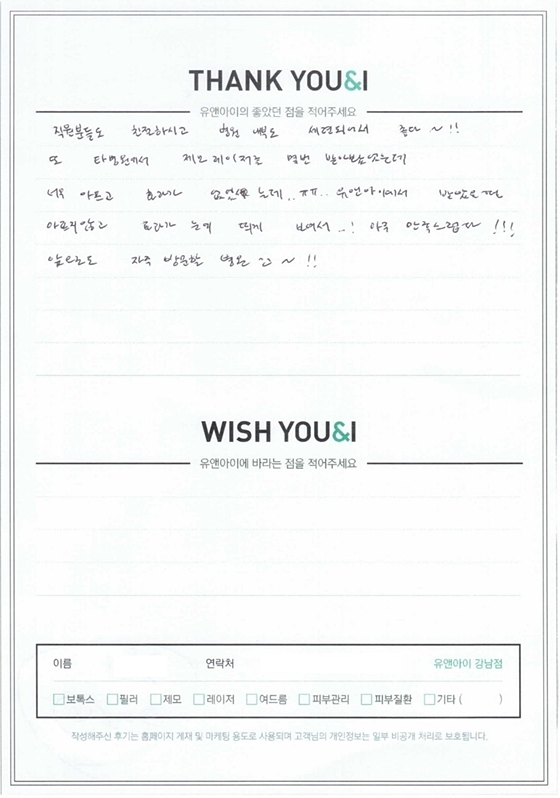 THANK YOU&I
유앤아이의 좋았던 점을 적어주세요
직원분들도 친절하시고 병원 내부도 세련되어서 좋다~!!
또 타병원에서 제모 레이저는 몇번 받아보았는데
너무 아프고 효과가 없었는데..ㅠㅠ.. 유앤아이에서 받았을때
아프지않고 효과가 눈에 띄게 보여서..! 아주 만족스럽다!!!
앞으로도 자주 방문할 병원~!!
WISH YOU&I
유앤아이에 바라는 점을 적어주세요
이름 연락처 유앤아이 강남점
보톡스 필러 제모 레이저 여드름 피부관리 피부질환 기타 ( )
작성해주신 후기는 홈페이지 게재 및 마케팅 용도로 사용되며 고객님의 개인정보는 일부 비공개 처리로 보호됩니다.